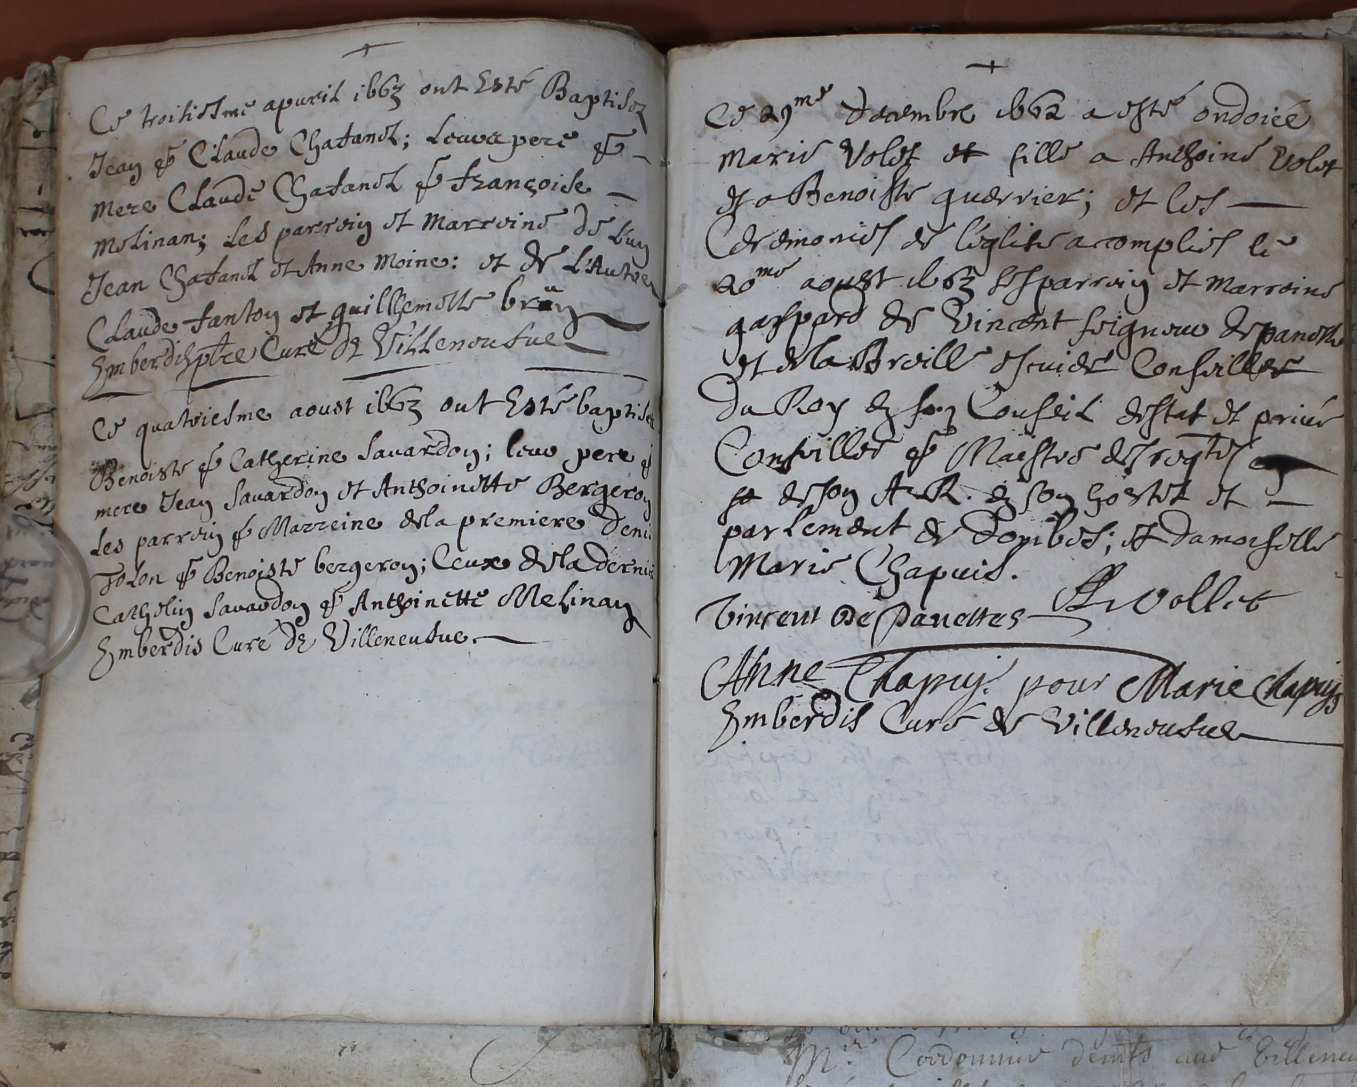 +
Ce troitiesme apvuril 1663 ont Esté Baptisez
Jean & Claude Chatanel; Leurs pere &
mere Claude Chatanel & françoise
Molinan; Les parrein et Marreine de L'un
Jean Chatanel et Anne Moine: et de L'Autre
Claude fanton et guilllemette brun
Emberdis ptre Curé de Villeneufve
Ce quatriesme aoust 1663 ont Esté baptisez
Benoiste & Catherine Savardon; leur pere &
mere Jean Savardon et Anthoinette Bergeron
Les parrein & Marreine de la premiere Denis
Jolon & Benoiste bergeron; Ceux de la derniere
Cathelin Savardon & Anthoinette Melinan
Emberdis Curé de Villeneufve.
+
Ce 29me decembre 1662 a esté ondoiée
Marie Volet et fille a Anthoine Volet
et a Benoiste guerrier; et les
Ceremonies de l'eglise acomplies le
20me aoust 1663 Ses parrein et Marreine
gaspard de Vincent seigneur de panette
et de la Breille escuier Conseiller
du Roy en son Conseil d'estat et privé
Conseiller & Maistre des reqtes
de son A. R. en son hostel et
parlement de Dombes; et damoiselle
Marie Chapuis.
Vincent De Panettes A Vollet
Anne Chapuis pour Marie Chapuis
Emberdis Curé de Villeneufve
Mr. Cordonnier